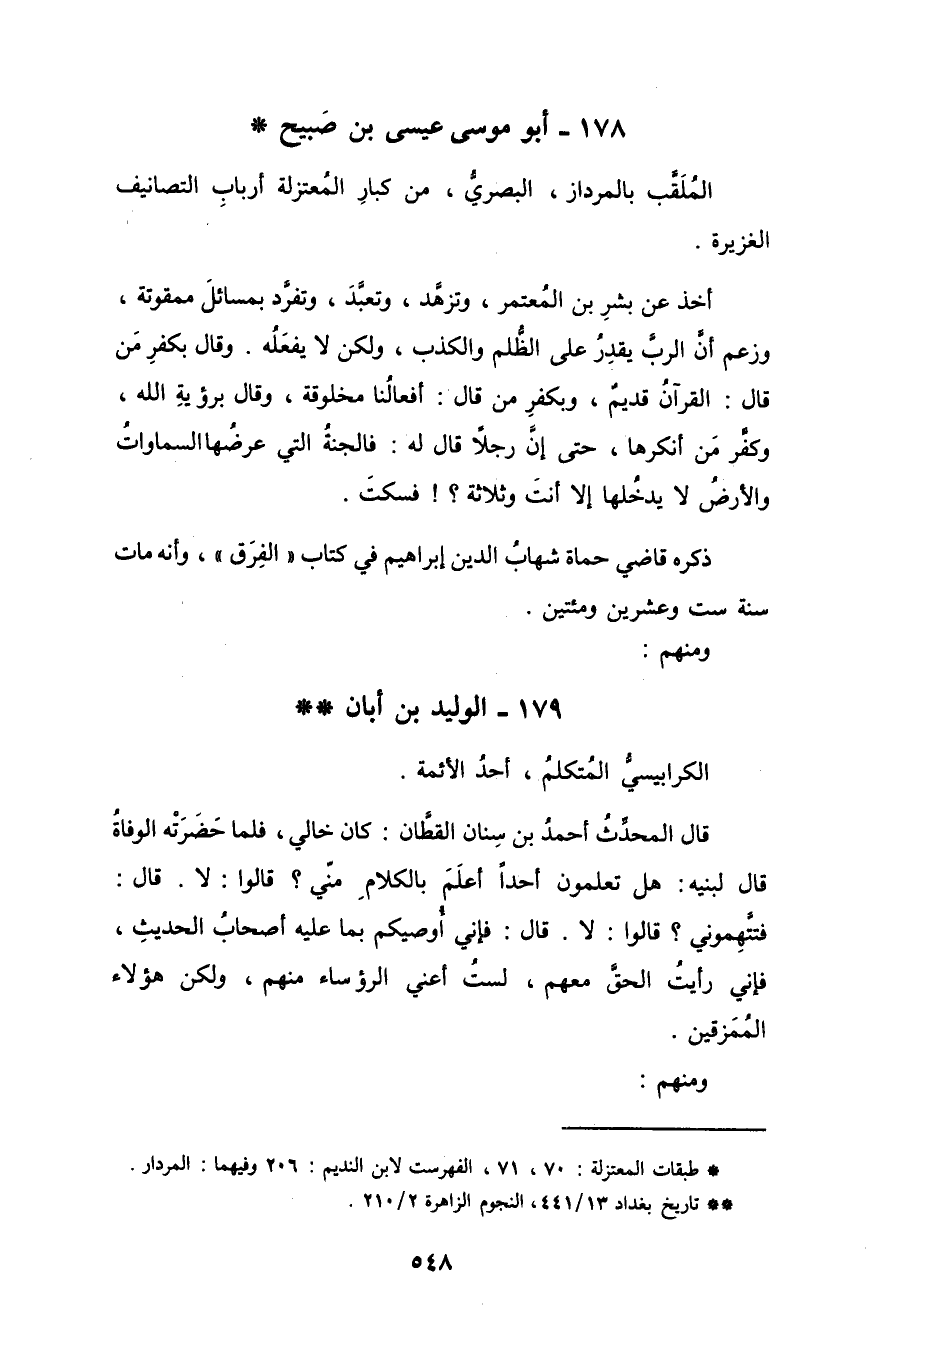 ١٧٨ ـ أبو موسى عيسى بن صَبيح *
المُلَقَّب بالمرداز ، البصريُّ ، من كبارِ المُعتزلة أربابِ التصانيف
الغزيرة .
أخذ عن بشرِ بن المُعتمر ، وتزهَّد ، وتعبَّدَ ، وتفرَّد بمسائلَ ممقوتة ،
وزعم أنَّ الربَّ يقدِرُ على الظُّلم والكذب ، ولكن لا يفعَلُه . وقال بكفرِ مَن
قال : القرآنُ قديمٌ ، وبكفرِ من قال : أفعالُنا مخلوقة ، وقال برؤيةِ الله ،
وكفَّر مَن أنكرها ، حتى إنَّ رجلًا قال له : فالجنةُ التي عرضُها السماواتُ
والأرضُ لا يدخُلها إلا أنتَ وثلاثة ؟ ! فسكتَ .
ذكره قاضي حماة شهابُ الدين إبراهيم في كتاب « الفِرَق » ، وأنه مات
سنة ست وعشرين ومئتين .
ومنهم :
١٧٩ ـ الوليد بن أبان **
الكرابيسيُّ المُتكلمُ ، أحدُ الأئمة .
قال المحدِّثُ أحمدُ بن سِنان القطَّان : كان خالي ، فلما حَضَرَتْه الوفاةُ
قال لبنيه : هل تعلمون أحداً أعلَمَ بالكلامِ منّي ؟ قالوا : لا . قال :
فتتَّهِموني ؟ قالوا : لا . قال : فإني أُوصيكم بما عليه أصحابُ الحديثِ ،
فإني رأيتُ الحقَّ معهم ، لستُ أعني الرؤساء منهم ، ولكن هؤلاء
المُمَزقين .
ومنهم :
* طبقات المعتزلة : ٧٠ ، ٧١ ، الفهرست لابن النديم : ٢٠٦ وفيهما : المردار .
** تاريخ بغداد ١٣/ ٤٤١ ، النجوم الزاهرة ٢/ ٢١٠ .
٥٤٨